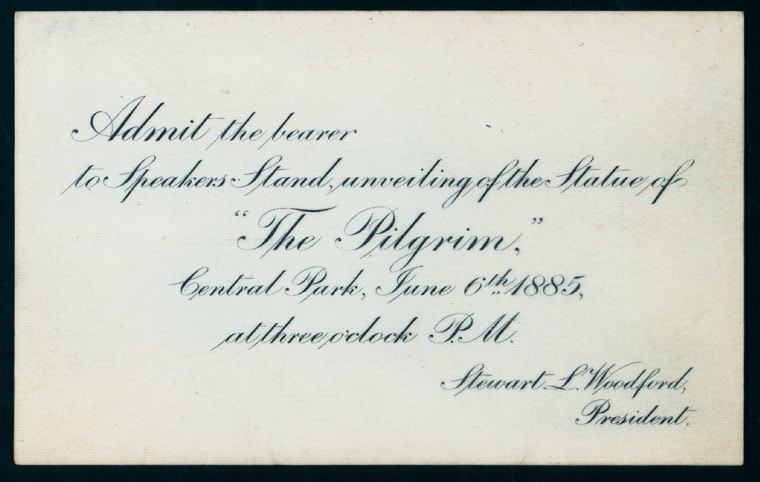 Admit the bearer
to Speakers Stand, unveiling of the Statue of
"The Pilgrim,"
Central Park, June 6th 1885,
at three o'clock P.M.
Stewart L. Woodford,
President.